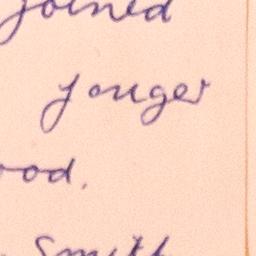 joined
youger
ood.
Smith